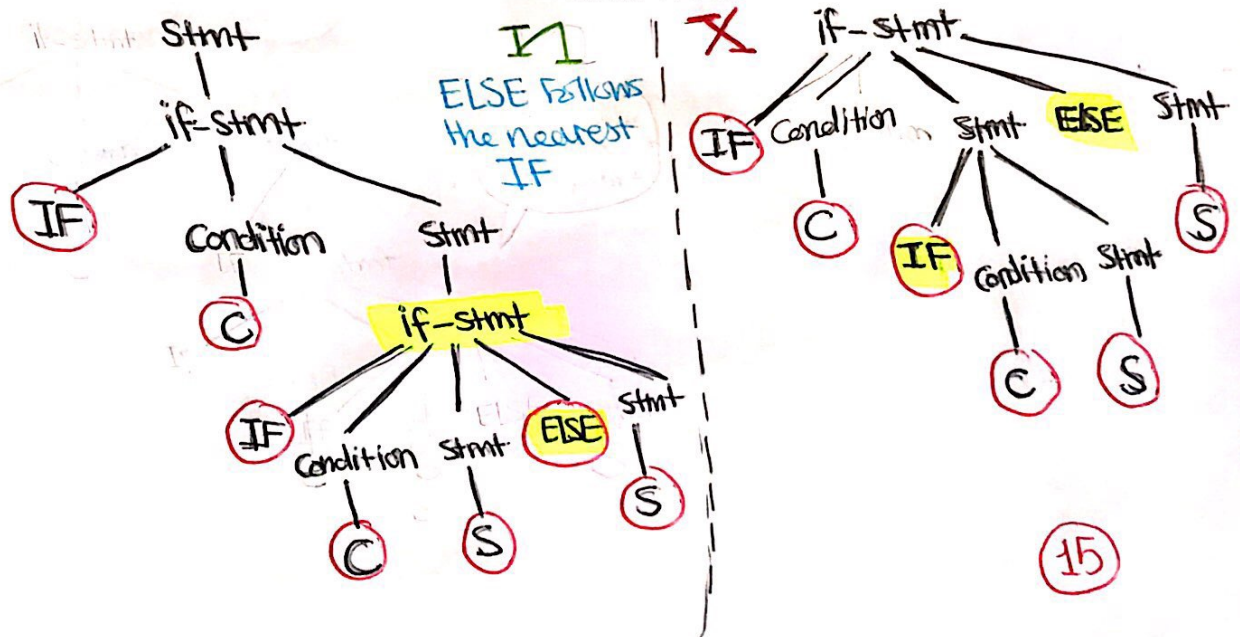 Stmt
if-stmt
IF
Condition
Stmt
C
if-stmt
IF
Condition
Stmt
ELSE
Stmt
C
S
S
ELSE Follows
the nearest
IF
X
if-stmt
IF
Condition
Stmt
ELSE
Stmt
C
IF
Condition
Stmt
S
C
S
15